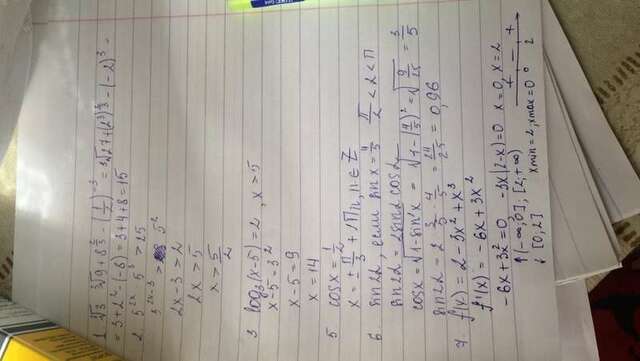 1. ∛3 ∛9 + 8^(2/3) - (1/2)^-3 = ∛27 + (2^3)^(2/3) - (-2)^3 =
= 3 + 2^2 - (-8) = 3 + 4 + 8 = 15
2. 5^2x 5^3 > 25
5^(2x-3) > 5^2
2x - 3 > 2
2x > 5
x > 5/2
3 log₃(x-5) = 2 , x > 5
x - 5 = 3^2
x - 5 = 9
x = 14
5. cosx = 1/2
x = ± π/3 + 2πn, n ∈ Z
6. sin2α, если sinx = 4/5 π/2 < α < π
sin2α = 2sinα cosα
cosx = √(1-sin²x) = √(1-(4/5)²) = √(9/25) = 3/5
sin2α = 2 · 3/5 · 4/5 = 24/25 = 0,96
7. f(x) = 2 - 3x² + x³
f'(x) = -6x + 3x²
-6x + 3x² = 0 -3x(2-x) = 0 x = 0, x = 2
↑ (-∞; 0]; [2; +∞) + - +
↓ [0; 2] xmin = 2, xmax = 0 0 2